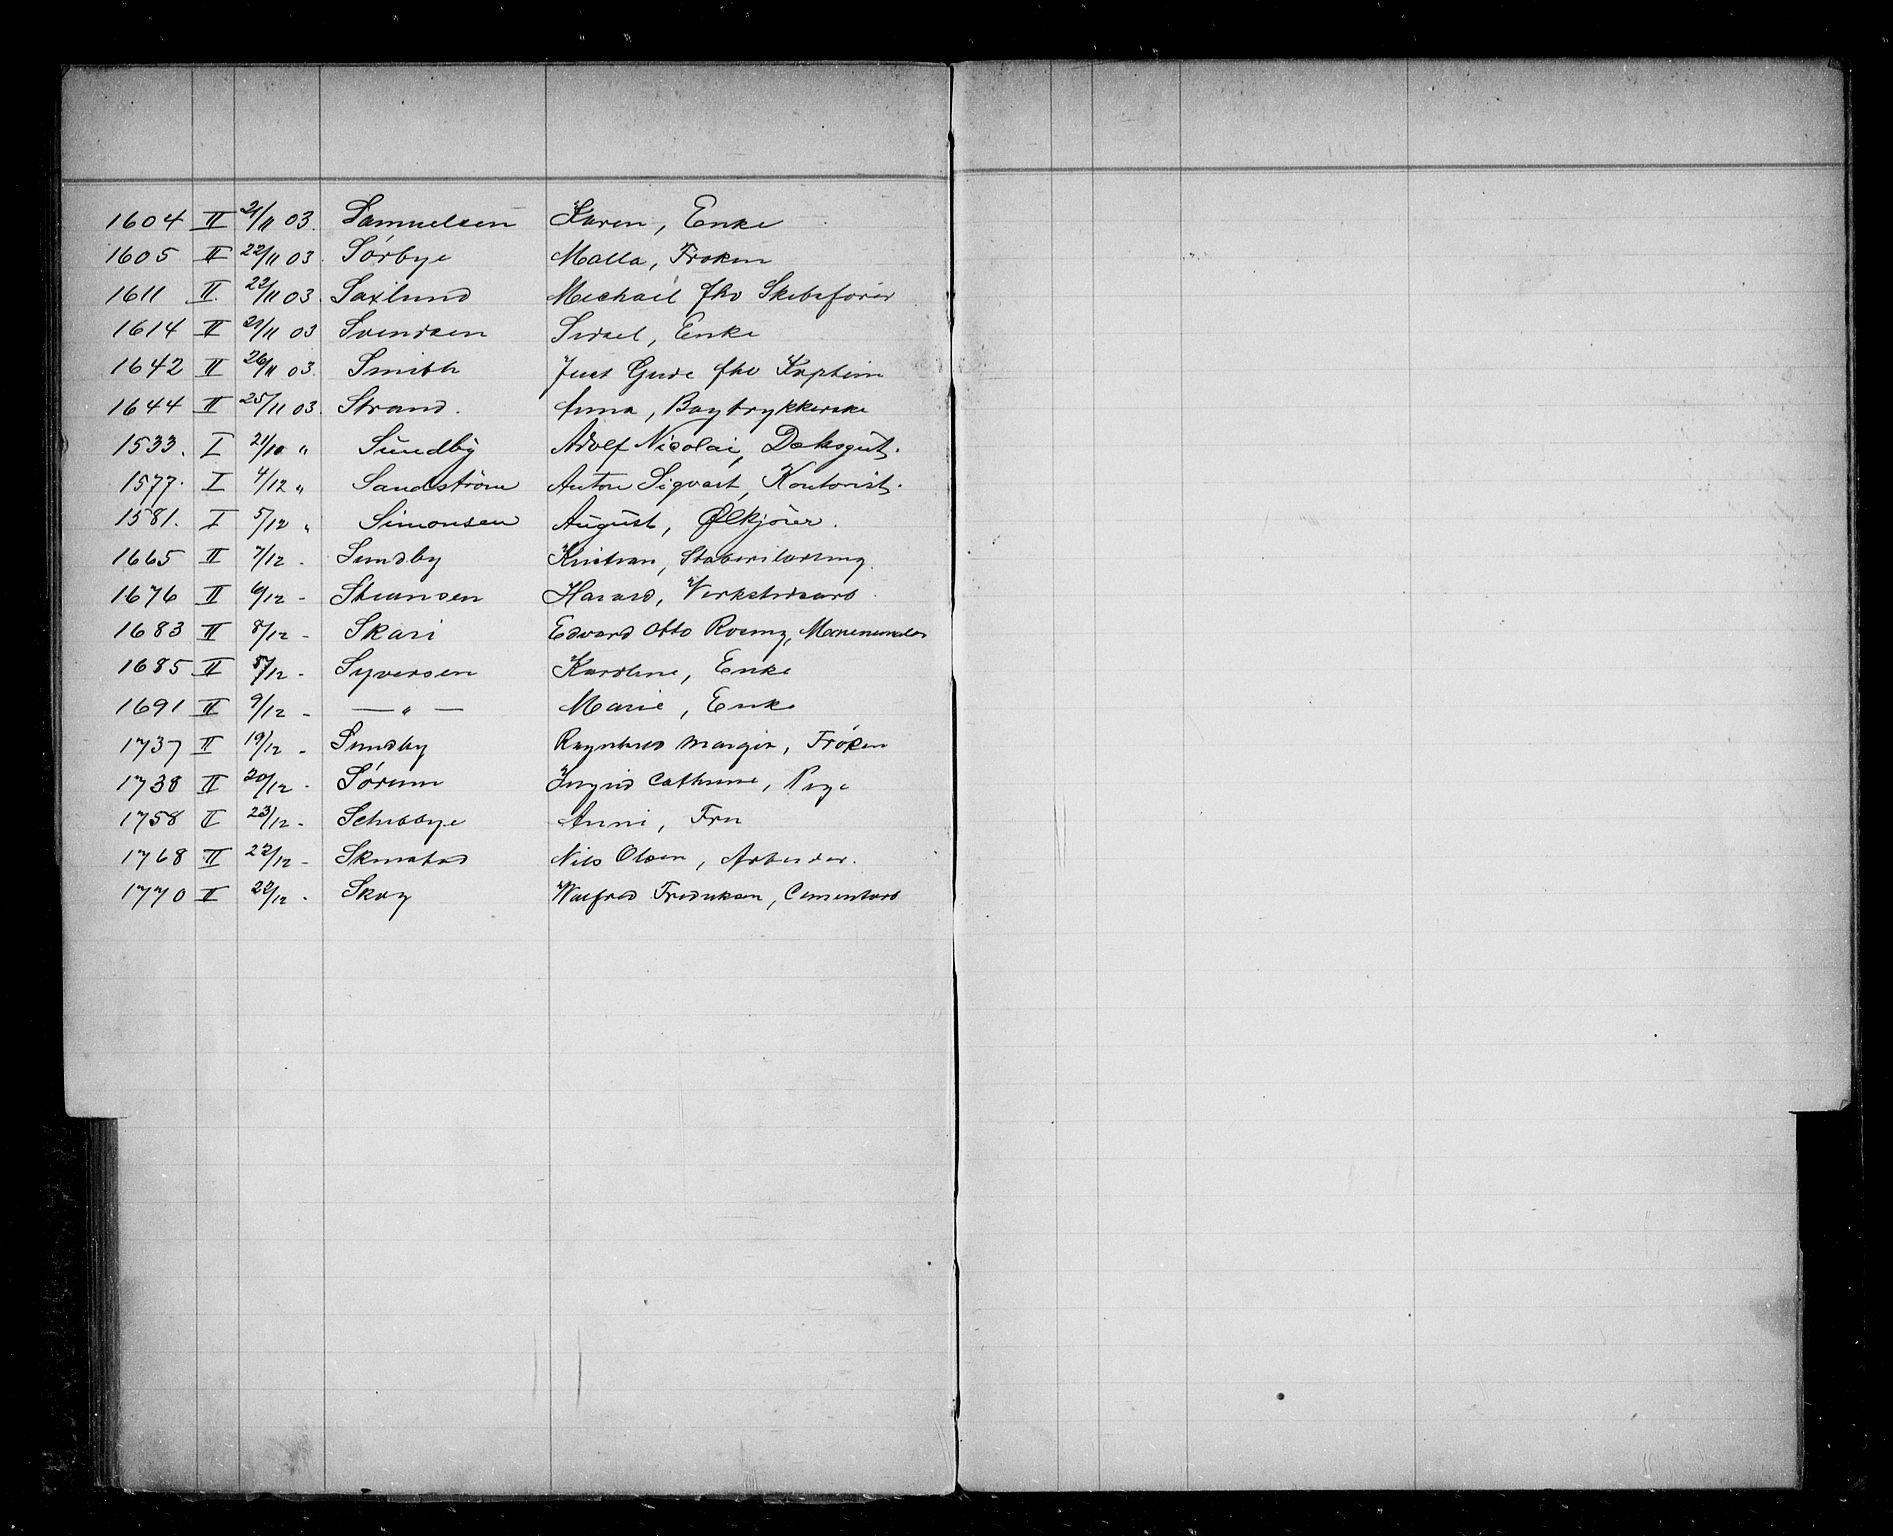 1604 II 21/11 03. Samuelsen Karen, Enke
1605 II 22/11 03. Sørbye Malla, Frøken
1611 II. 22/11 03. Saxlund Michael fhv Skibsfører
1614 II 21/11 03 Svendsen Sidsel, Enke
1642 II 26/11 03. Smith Just Gude fhv Kaptein
1644 II 25/11 03. Strand. Anna, Bogtrykkerske
1533. I 21/10 " Sundby Adolf Nicolai, Dæksgut.
1577. I 4/12 " Sandström Anton Sigvart, Kontorist.
1581. I 5/12 " Simonsen August, Ølkjører.
1665 II 7/12 - Sundby Kristian,
1676 II 6/12 - Steansen Harald, Verkstedsarb.
1683 II 8/12 - Skari Edvard Otto
1685 II 5/12 - Syversen Karoline, Enke
1691 II 9/12 - — " — Marie, Enke
1737 II 19/12 - Sundby Ragnhild Margit, Frøken
1738 II 20/12 - Sørum Ingrid Cathrine, Pige
1758 I 23/12 - Schibbye Anni, Fru
1768 II 22/12 - Nils Olsen, Arbeider.
1770 II 22/12 - Skog Walfred Fredriksen, Cementarb